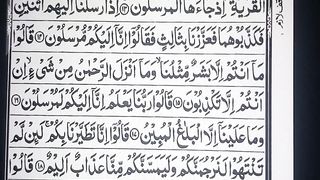 القرية إذ جاءها المرسلون ﴿١٣﴾ إذ أرسلنا إليهم اثنين
فكذبوهما فعززنا بثالث فقالوا إنا إليكم مرسلون ﴿١٤﴾ قالوا
ما أنتم إلا بشر مثلنا وما أنزل الرحمٰن من شيء إن
أنتم إلا تكذبون ﴿١٥﴾ قالوا ربنا يعلم إنا إليكم لمرسلون ﴿١٦﴾
وما علينا إلا البلاغ المبين ﴿١٧﴾ قالوا إنا تطيرنا بكم لئن لم
تنتهوا لنرجمنكم وليمسنكم منا عذاب أليم ﴿١٨﴾ قالوا